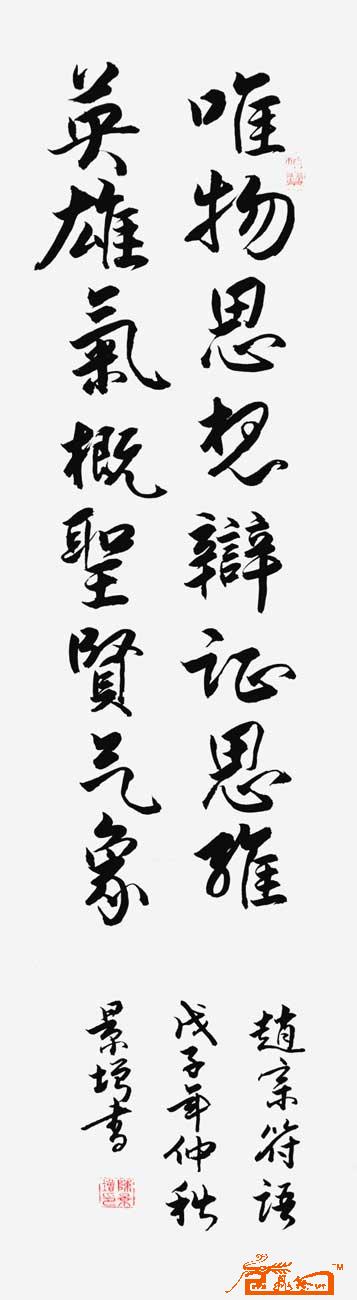 唯物思想辯证思維
英雄氣概聖賢气象
趙宗符語
戊子年仲秋
景增書